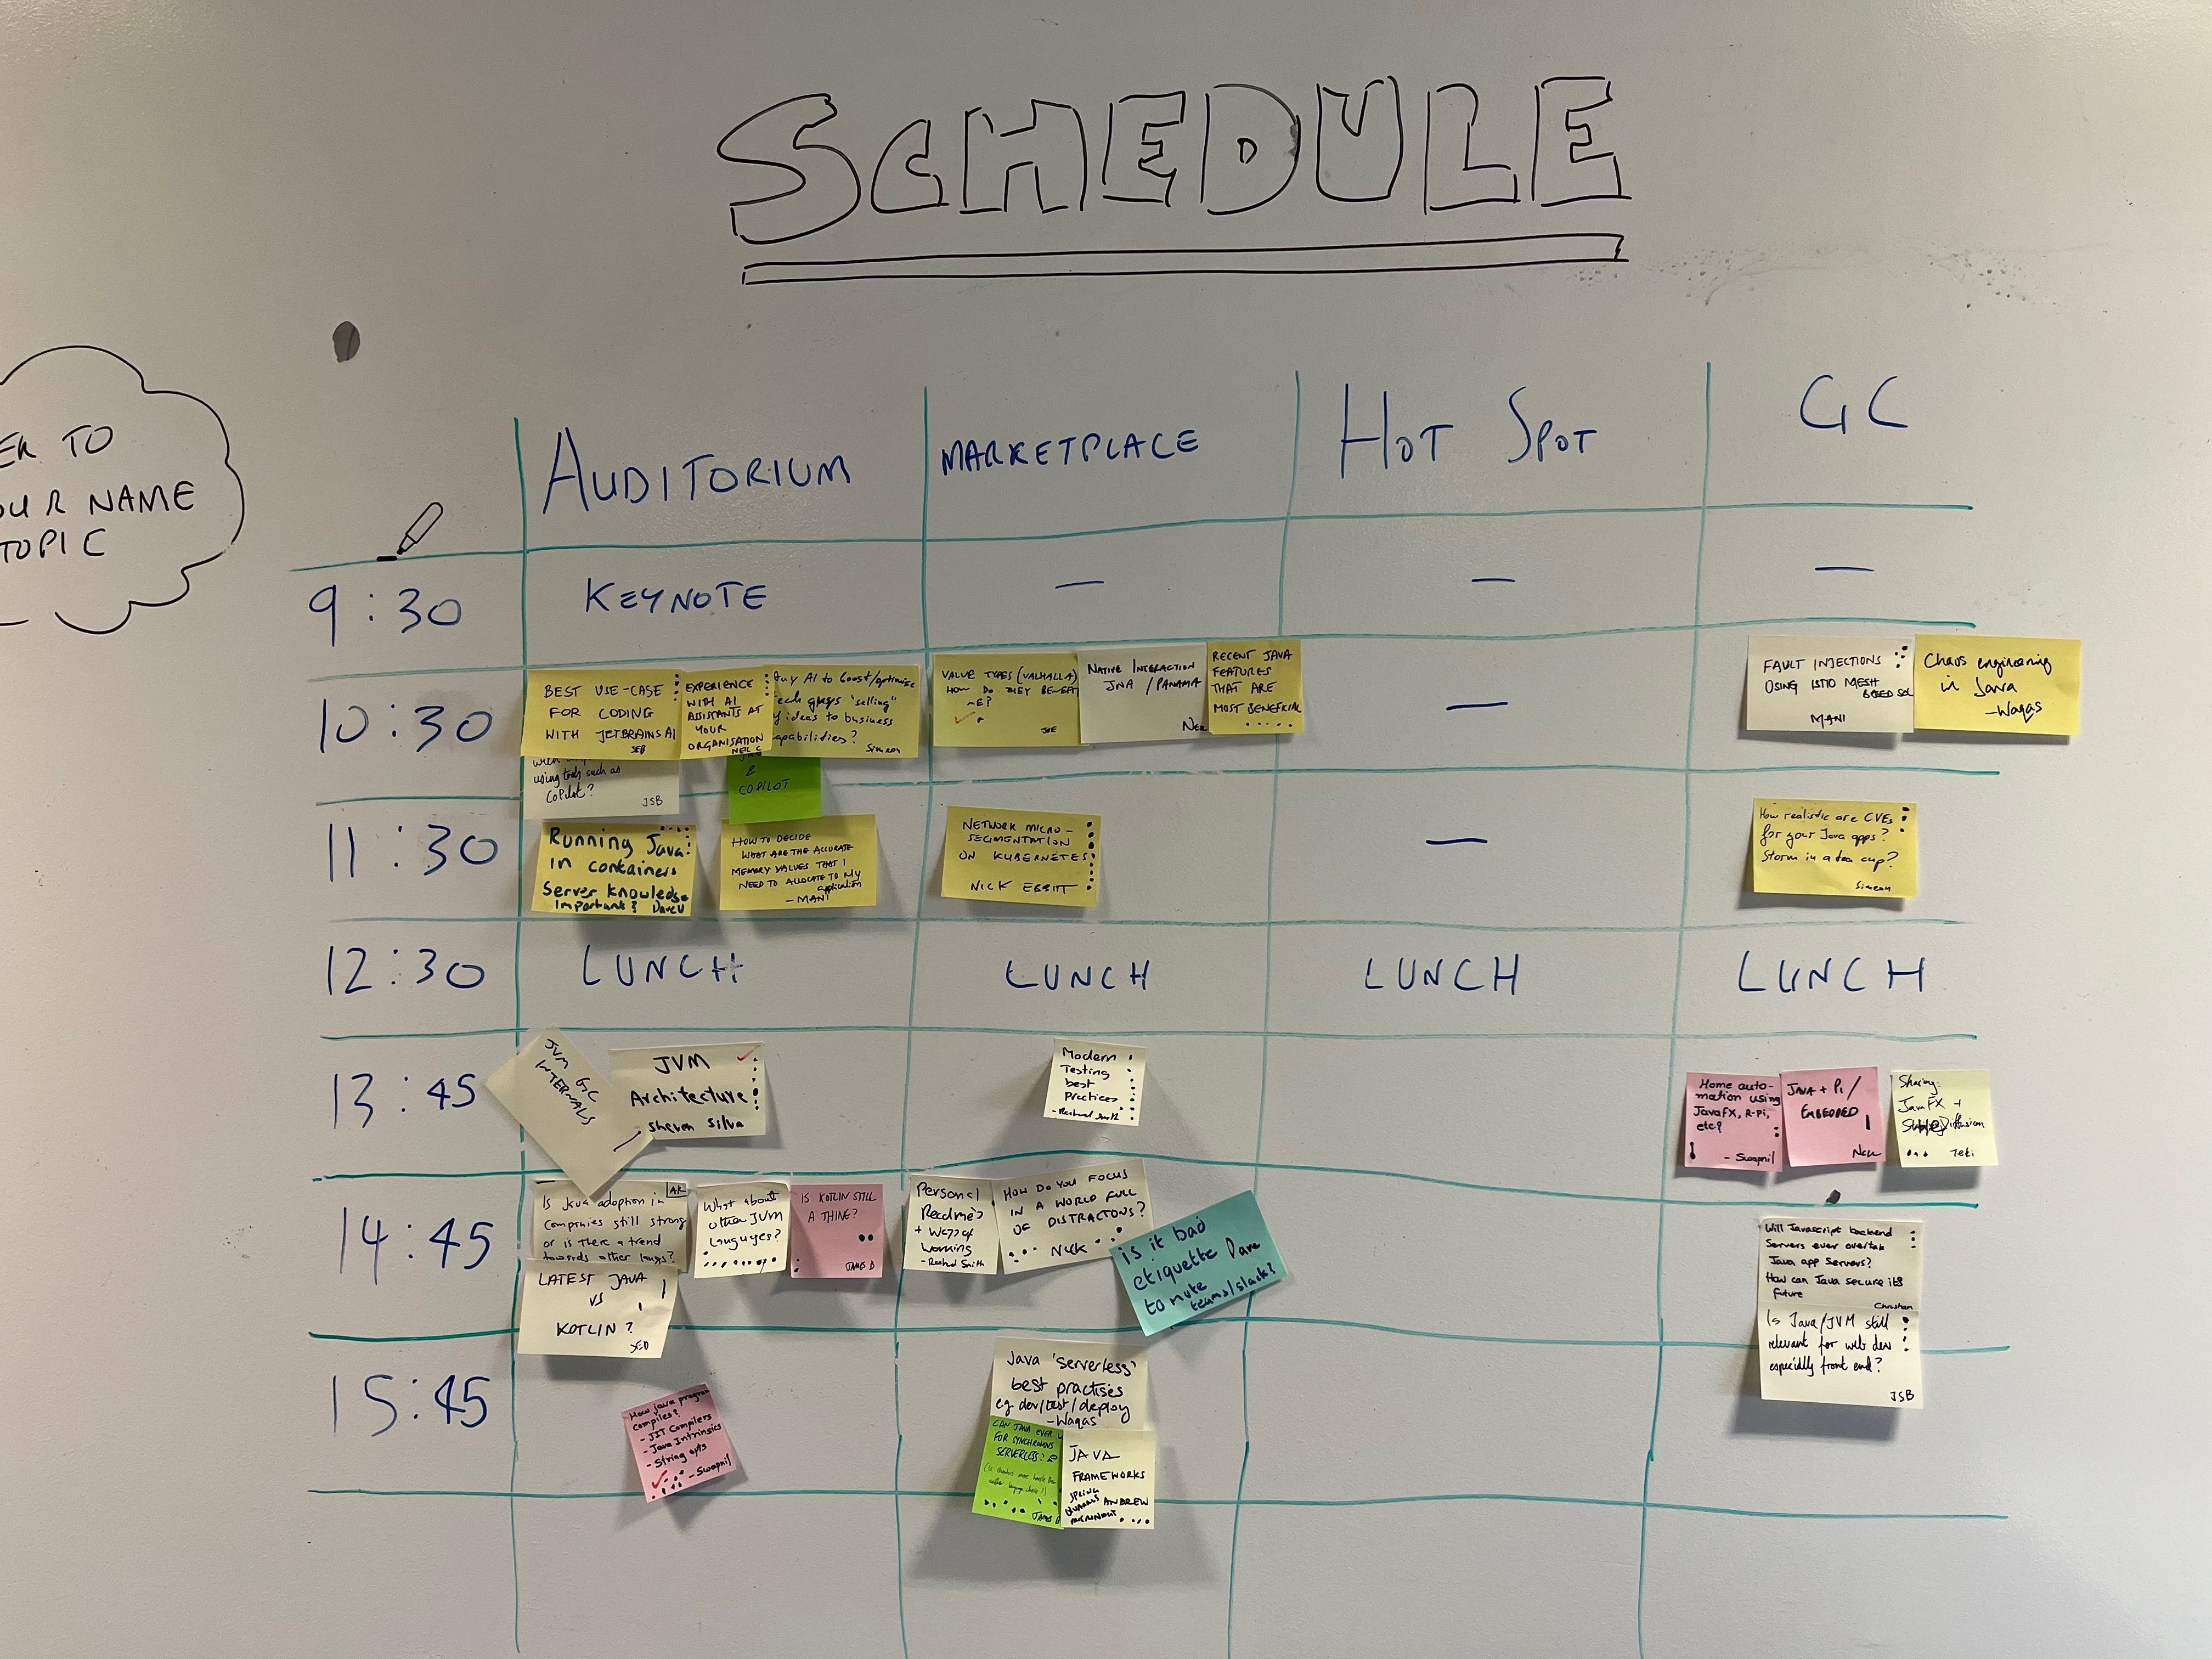 SCHEDULE
ER TO
OUR NAME
TOPIC
AUDITORIUM
MARKETPLACE
HOT SPOT
GC
9:30
KEYNOTE
—
—
—
10:30
BEST USE-CASE
FOR CODING
WITH JETBRAINS AI
SEB
EXPERIENCE
WITH AI
ASSISTANTS AT
YOUR
ORGANISATION
NEIL C
AI to boost/optimise
guys "selling"
ideas to business
capabilities?
Simeon
using tools such as
CoPilot?
JSB
2
COPILOT
VALUE TYPES (VALHALLA)
HOW DO THEY BENEFIT
ME?
JOE
NATIVE INTERACTION
JNA / PANAMA
NEIL
RECENT JAVA
FEATURES
THAT ARE
MOST BENEFICIAL
—
FAULT INJECTIONS
USING ISTIO MESH
BASED SOL
MANI
Chaos engineering
in Java
-Waqas
11:30
Running Java
in containers
Server knowledge
important? Dave U
HOW TO DECIDE
WHAT ARE THE ACCURATE
MEMORY VALUES THAT I
NEED TO ALLOCATE TO MY
application
- MANI
NETWORK MICRO-
SEGMENTATION
ON KUBERNETES
NICK EBBITT
—
How realistic are CVEs
for your Java apps?
Storm in a tea cup?
Simeon
12:30
LUNCH
LUNCH
LUNCH
LUNCH
13:45
JVM GC
INTERNALS
JVM
Architecture
Sheron Silva
Modern
Testing
best
practices
- Richard Smith
Home auto-
mation using
JavaFX, R-Pi,
etc?
- Swapnil
JAVA + PI /
EMBEDDED
Nick
Sharing:
JavaFX +
Diffusion
14:45
Is Java adoption in
AR
companies still strong
or is there a trend
towards other langs?
What about
other JVM
languages?
IS KOTLIN STILL
A THING?
JAMES B
LATEST JAVA
VS
KOTLIN?
Personal
Readme's
+ Ways of
working
- Richard Smith
HOW DO YOU FOCUS
IN A WORLD FULL
OF DISTRACTONS?
NICK
is it bad
etiquette Dave
to mute
teams/slack?
Will Javascript backend
Servers ever overtake
Java app servers?
How can Java secure its
future
Christian
Is Java/JVM still
relevant for web dev
especially front end?
JSB
15:45
How java program
compiles?
- JIT Compilers
- Java Intrinsics
- String opts
- Swapnil
Java 'serverless'
best practises
eg dev/test/deploy
-Waqas
CAN JAVA EVER
FOR SYNCHRONOUS
SERVERLESS?
JAMES B
JAVA
FRAMEWORKS
SPRING
QUARKUS ANDREW
MICRONAUT